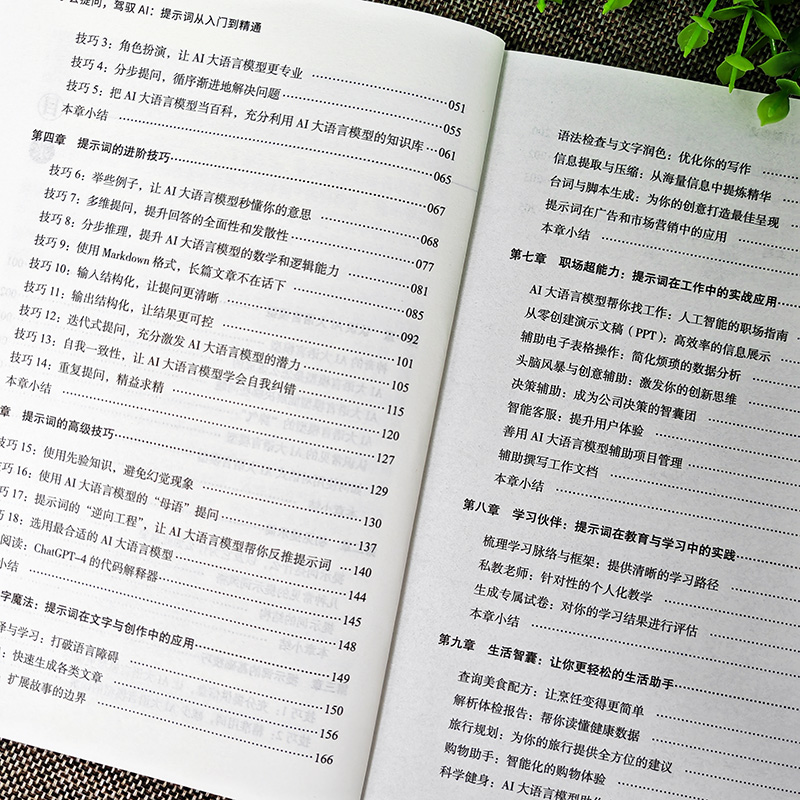 会提问，驾驭 AI：提示词从入门到精通
技巧 3：角色扮演，让 AI 大语言模型更专业 051
技巧 4：分步提问，循序渐进地解决问题 055
技巧 5：把 AI 大语言模型当百科，充分利用 AI 大语言模型的知识库 061
本章小结 065
第四章 提示词的进阶技巧 067
技巧 6：举些例子，让 AI 大语言模型秒懂你的意思 068
技巧 7：多维提问，提升回答的全面性和发散性 077
技巧 8：分步推理，提升 AI 大语言模型的数学和逻辑能力 081
技巧 9：使用 Markdown 格式，长篇文章不在话下 085
技巧 10：输入结构化，让提问更清晰 092
技巧 11：输出结构化，让结果更可控 101
技巧 12：迭代式提问，充分激发 AI 大语言模型的潜力 105
技巧 13：自我一致性，让 AI 大语言模型学会自我纠错 115
技巧 14：重复提问，精益求精 120
本章小结 127
章 提示词的高级技巧 129
技巧 15：使用先验知识，避免幻觉现象 130
技巧 16：使用 AI 大语言模型的“母语”提问 137
技巧 17：提示词的“逆向工程”，让 AI 大语言模型帮你反推提示词 140
18：选用最合适的 AI 大语言模型 144
阅读：ChatGPT-4 的代码解释器 145
小结 148
字魔法：提示词在文字与创作中的应用 149
与学习：打破语言障碍 150
：快速生成各类文章 156
：扩展故事的边界 166
语法检查与文字润色：优化你的写作
信息提取与压缩：从海量信息中提炼精华
台词与脚本生成：为你的创意打造最佳呈现
提示词在广告和市场营销中的应用
本章小结
第七章 职场超能力：提示词在工作中的实战应用
AI 大语言模型帮你找工作：人工智能的职场指南
从零创建演示文稿（PPT）：高效率的信息展示
辅助电子表格操作：简化烦琐的数据分析
头脑风暴与创意辅助：激发你的创新思维
决策辅助：成为公司决策的智囊团
智能客服：提升用户体验
善用 AI 大语言模型辅助项目管理
辅助撰写工作文档
本章小结
第八章 学习伙伴：提示词在教育与学习中的实践
梳理学习脉络与框架：提供清晰的学习路径
私教老师：针对性的个人化教学
生成专属试卷：对你的学习结果进行评估
本章小结
第九章 生活智囊：让你更轻松的生活助手
查询美食配方：让烹饪变得更简单
解析体检报告：帮你读懂健康数据
旅行规划：为你的旅行提供全方位的建议
购物助手：智能化的购物体验
科学健身：AI 大语言模型